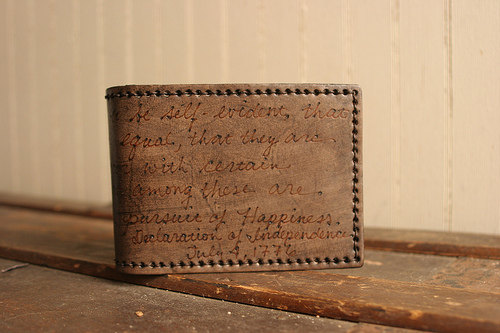 be self-evident, that
equal, that they are
with certain
among these are
pursuit of Happiness.
Declaration of Independence
July 4 1776